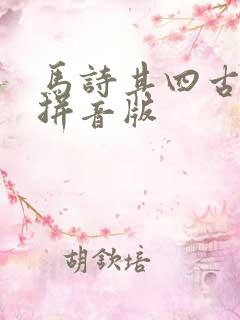 馬詩其四古
拼音版
胡欽培